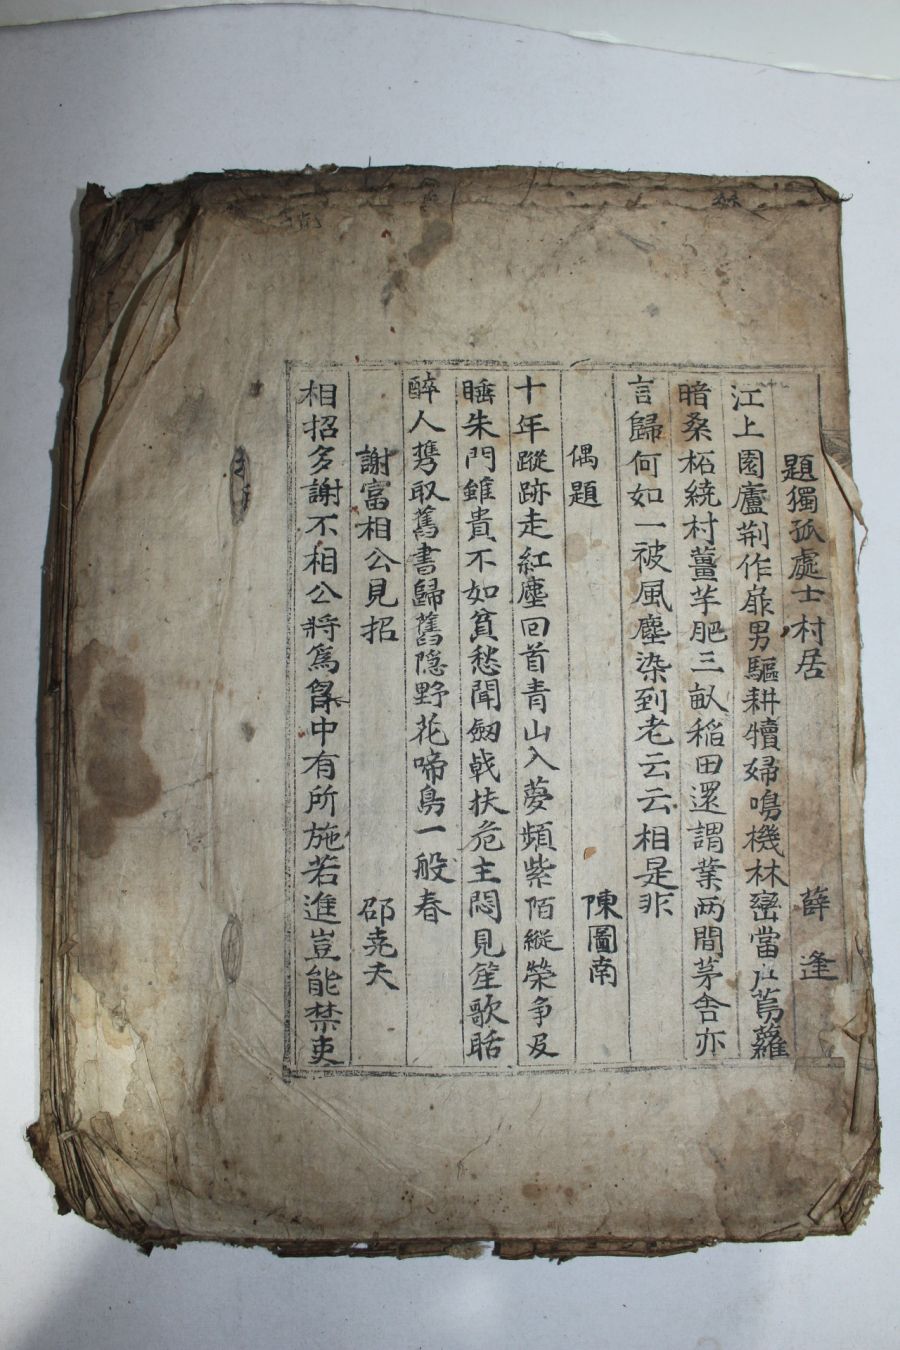 題獨孤處士村居 薛逢
江上園廬荆作扉男驅耕犢婦鳴機林巒當户蔦蘿
暗桑柘繞村薑芋肥三畝稻田還謂業两間茅舍亦
言歸何如一被風塵染到老云云相是非
偶題 陳圖南
十年蹤跡走紅塵回首青山入夢頻紫陌縱榮争及
睡朱門雖貴不如貧愁聞劒戟扶危主悶見笙歌聒
醉人携取舊書歸舊隱野花啼鳥一般春
謝富相公見招 邵堯夫
相招多謝不相公將爲 中有所施若進豈能禁吏